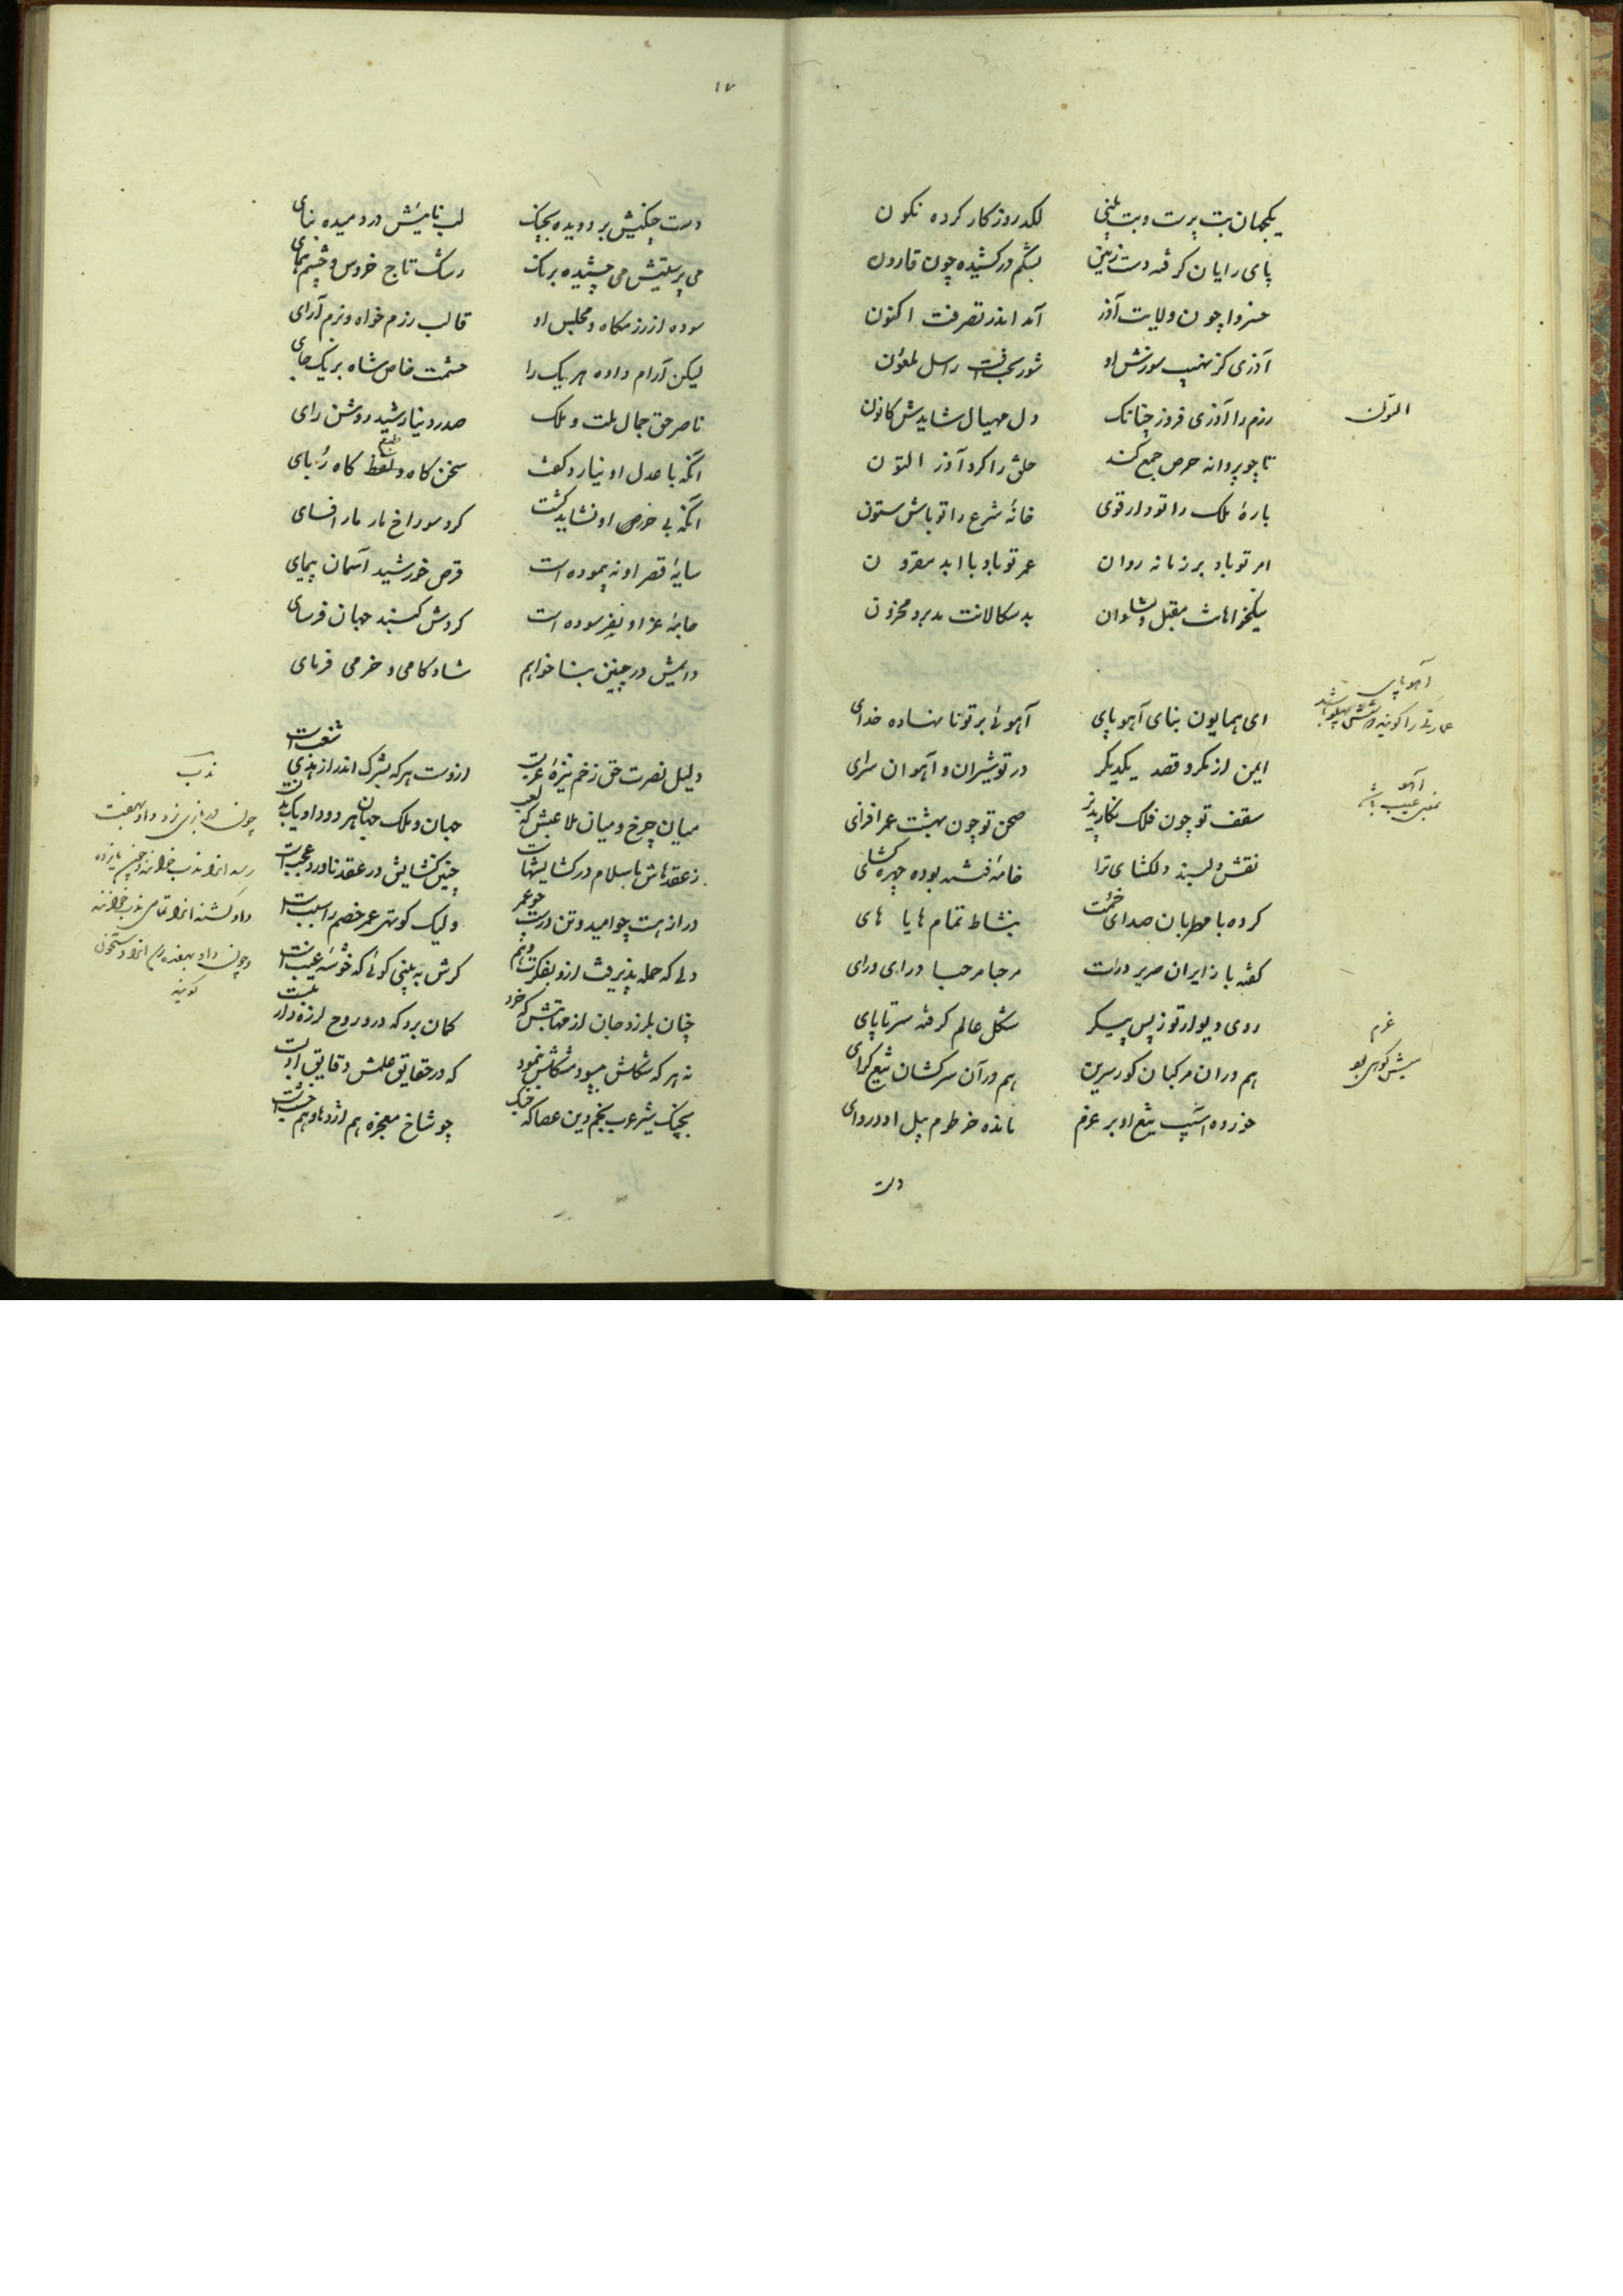 یکجهان بت پرست و بت بینی لکد روزکار کرده نکون
پای رایان کرفته دست زمین بشکم درکشیده چون قارون
خسروا چون ولایت آذر آمد اندر تصرفت اکنون
آذری کز نهیب سوزش او
رزم را آذری فروز چنانک دل مهیال شایدش کانون
تا چو پروانه حرص جمع کند خلق را کرد آذر التون
بارهٔ ملک را تو دار قوی خانهٔ شرع را تو باش ستون
امر تو باد بر زمانه روان عمر تو باد با ابد مقرون
نیکخواهانت مقبل و شادان بدسکالانت مدبر و محزون
ای همایون بنای آهو پای آهوئی بر تو نا نهاده خدای
ایمن از مکر و قصد یکدیکر در تو شیران و آهوان سرای
سقف تو چون فلک نکارپذیر صحن تو چون بهشت عمر افزای
نقش دلبند و دلکشای ترا خامهٔ فتنه بوده چهره کشای
کرده با مطربان صدای خمت بنشاط تمام هایا های
کفته با زایران صریر درت مرحبا مرحبا درای درای
روی دیوار تو ز بس پیکر شکل عالم کرفته سر تا پای
هم دران مرکبان کور سرین هم در آن سرکشان تیغ کرای
خورده آسیب تیغ او بر غرم مانده خرطوم پیل او در وای
دست
التون
آهو پای
عمارتی را کویند که شش پهلو باشد
آهو
بمعنی عیب باشد
غرم
میش کوهی بود
۱۷
دست چنکیش بر دویده بچنک لب نائیش در دمیده بنای
می پرستیش می چشیده برنک رشک تاج خروس و چشم همای
سوده از رزمکاه و مجلس او قالب رزم خواه و بزم آرای
لیکن آرام داده هر یک را حشمت خاص شاه بر یک جای
ناصر حق جمال ملت و ملک صدر دنیا رشید روشن رای
آنکه با عدل او نیارد کفت سخن کاه و لفظ کاه ربای
طبع
آنکه بی حرص او نشاید کشت کرد سوراخ مار مار افسای
سایهٔ قصر او نه پیموده است قرص خورشید آسمان پیمای
جامهٔ عز او نفرسوده است کردش کنبد جهان فرسای
دایمش در چنین بنا خواهم شاد کامی و خرمی فرمای
دلیل نصرت حق زخم نیزهٔ عربست ازوست هر که بشرک اندر از هدی شغب است
میان چرخ و میان ملاعبش که لعب جهان و ملک جهان هر دو داو یک ندبست
ز عقدهاش باسلام در کشایشهاست چنین کشایش در عقد نادر و عجب است
دراز هست چو امید و تن درست چو عمر ولیک کوتهی عمر خصم را سبب است
دلی که حمله پذیرفت ازو بفکرت و وهم کرش به بینی کوئی که خوشهٔ عنب است
چنان بلرزد جان از مهابتش که خرد کمان برد که در و روح لرزه دار تبست
نه هر که شکلش بیسود مشکلش بنمود که در حقایق علمش دقایق ادبست
بچنک شیر عرب نجم دین عصا که جنک چو شاخ معجزه هم اژدها و هم خشبست
ندب
چون در بازی نرد داو بهفت
رسد انرا ندب خوانند و چون یازده
داو کشند انرا تمامی ندب خوانند
و چون داو بهفده رسد انرا دستخون
کویند